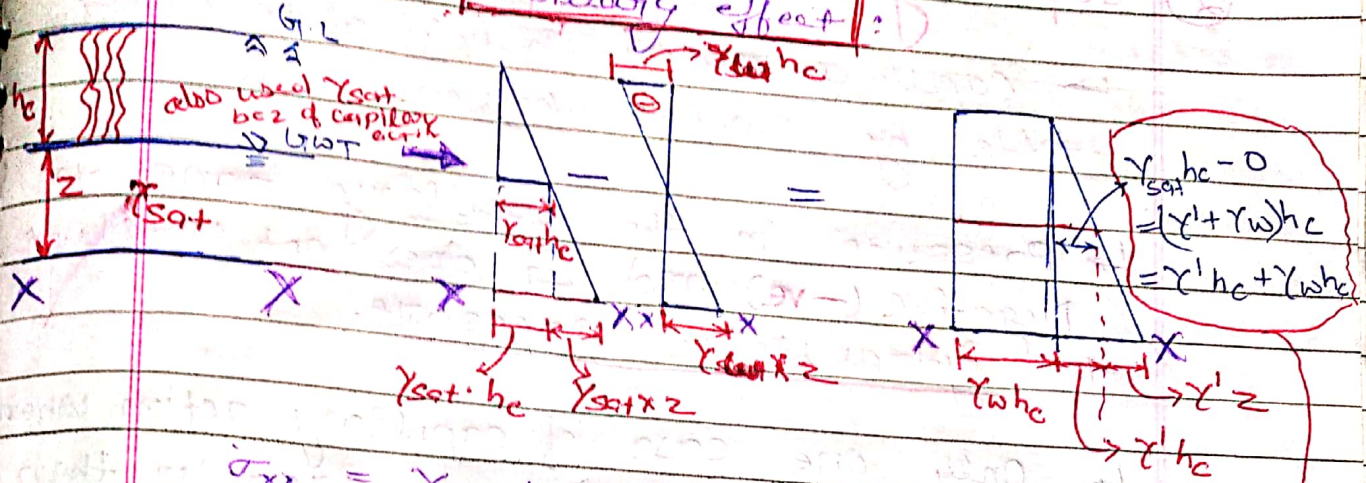 effect :
G.L
hc
also used γsat
bcz of capillary
GWT
z
γsat
X X X
γsat hc
γsat . hc γsat x z
−
γw hc
⊖
X X X
γw x z
=
γsat hc - 0
= (γ' + γw) hc
= γ' hc + γw hc
X X
γw hc
γ' z
γ' hc
σxx =